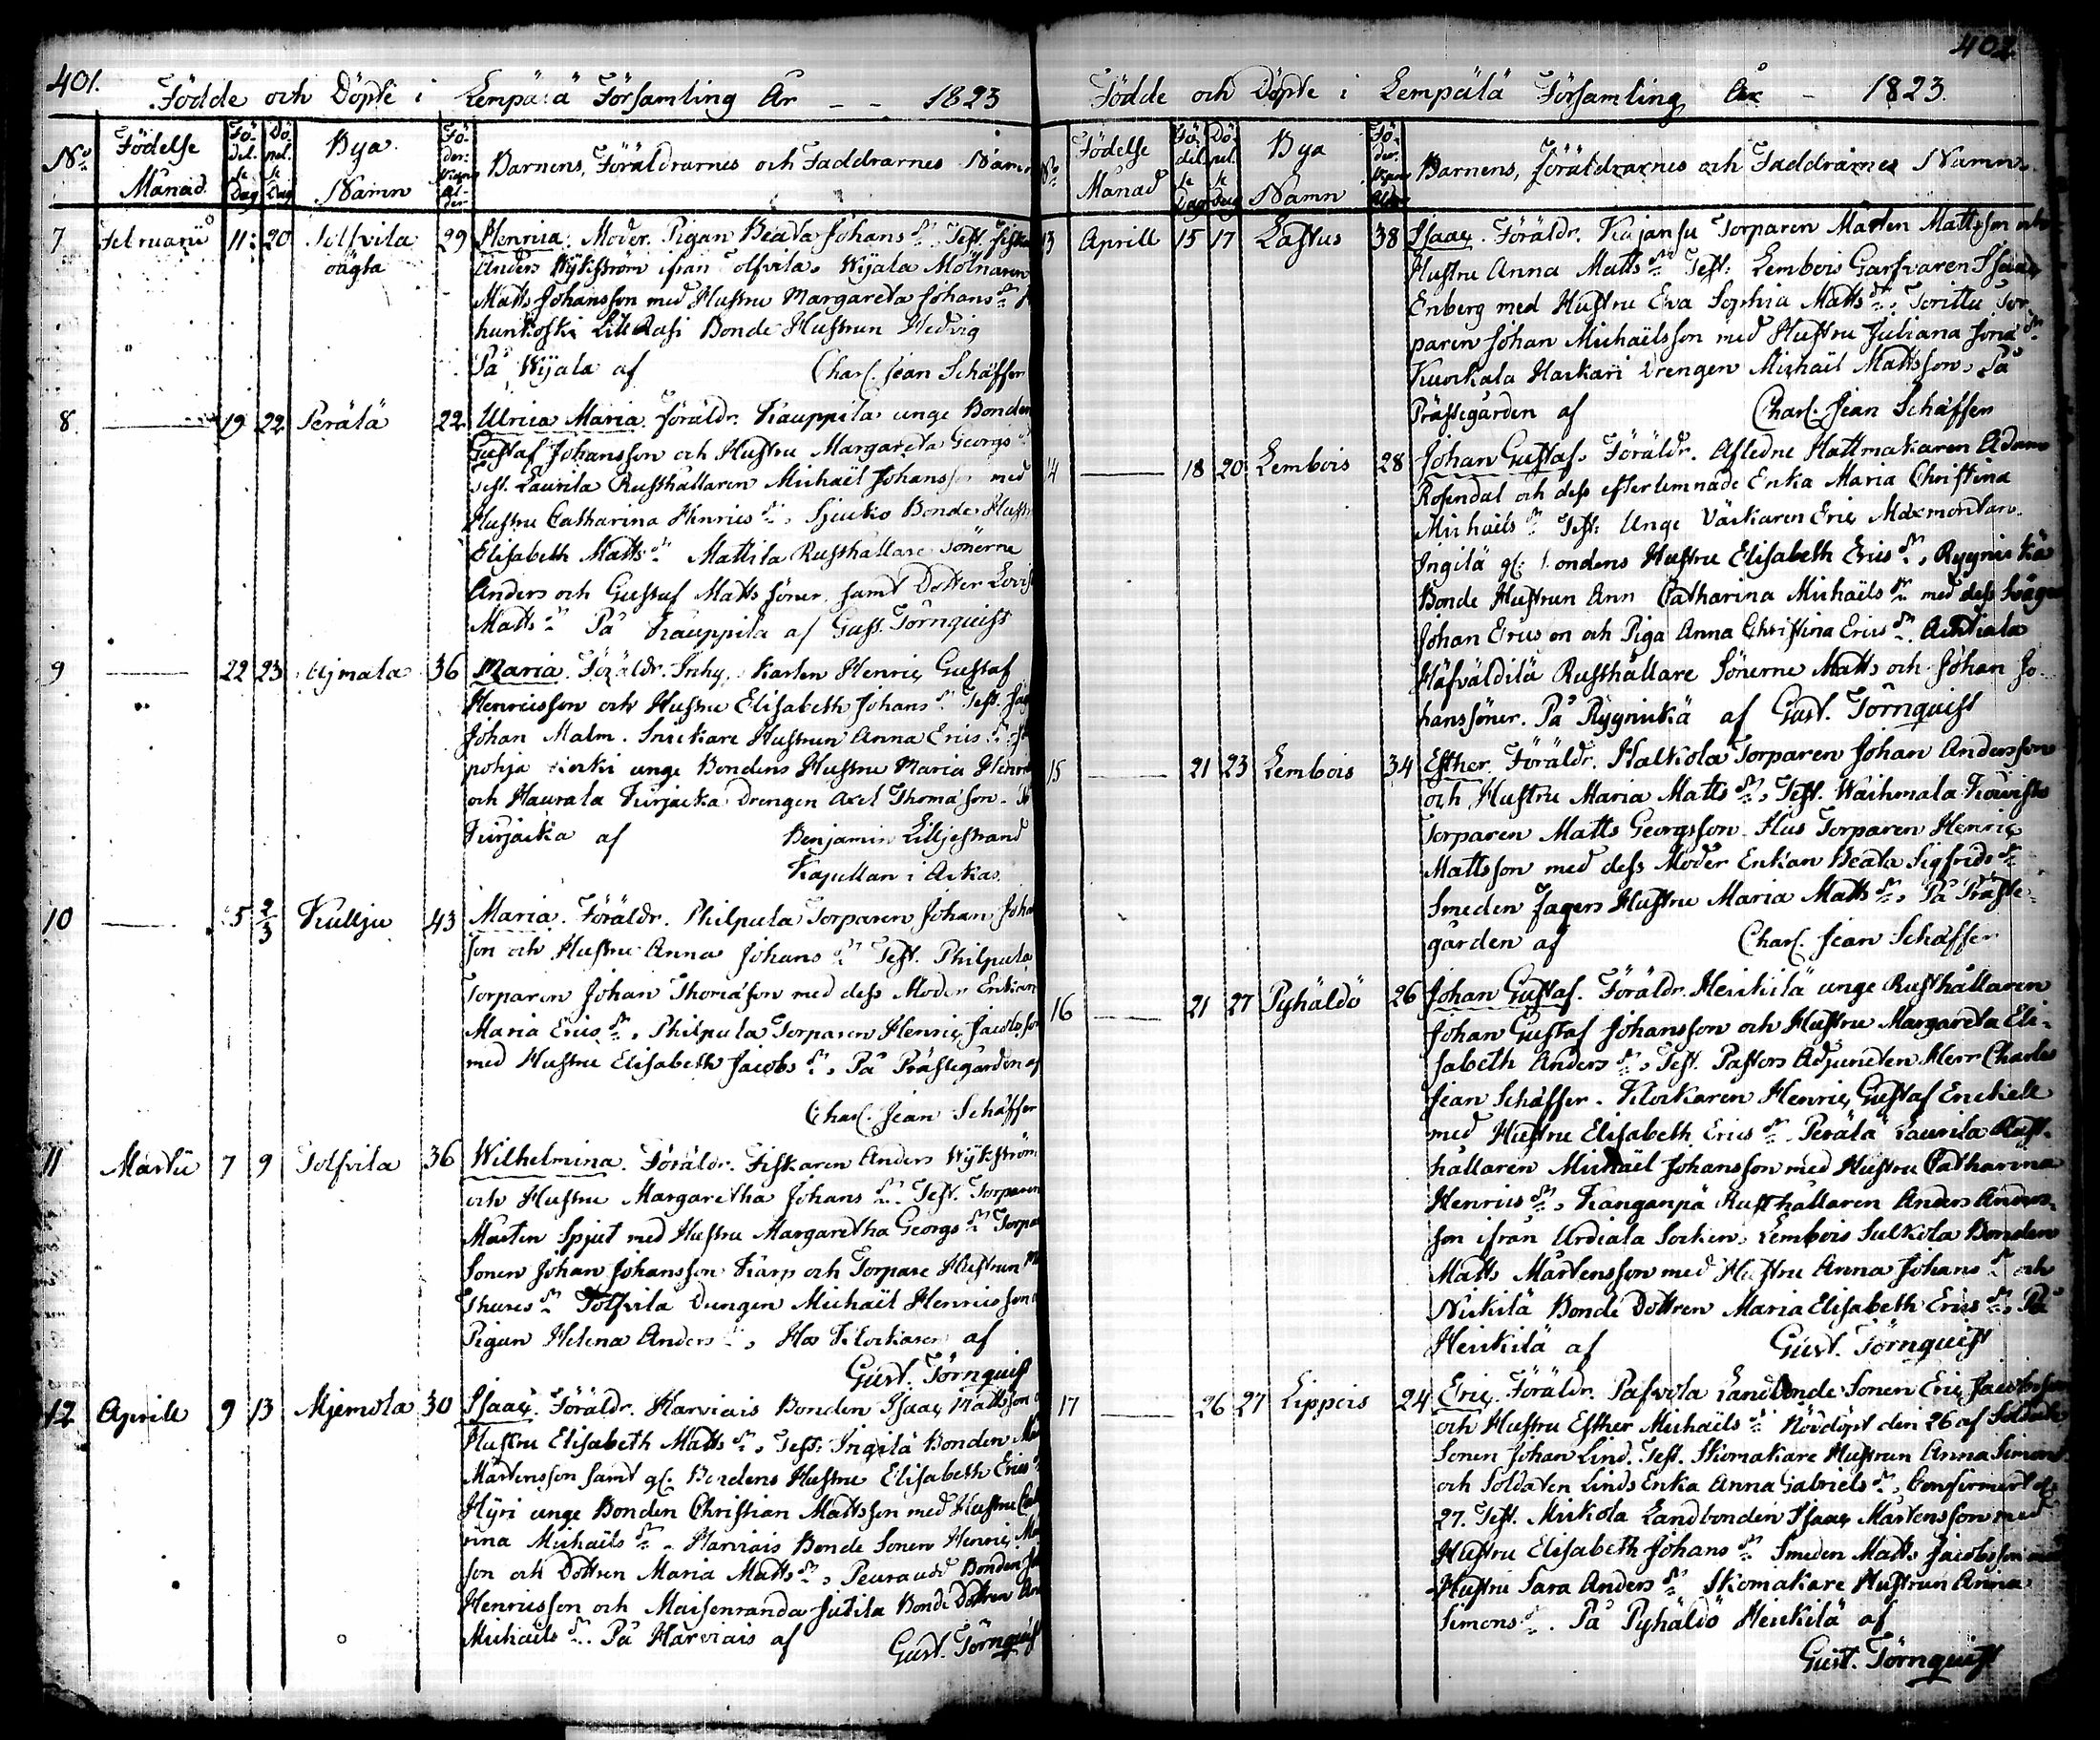 401.
Födde och Döpte i Lempälä Församling År - - 1823
No Födelse Månad Födel.se Dag Döpel.se Dag Bya Namn Föder: Ålder Barnens, Föräldrarnes och Faddrarnes Namn
7 Februarii 11 20 Tolfvila oägta 29 Henrica. Moder. Pigan Beata Johans dr. Test. Fiska
Anders Wijkström ifrån Tolfvila, Wijala Mölnaren
Matts Johansson med Hustru Margareta Johans dr
hunkoski Lill Rasi Bonde Hustrun Hedvig
På Wijala af Charl. Jean Schäffer
8 19 22 Perälä 22 Ulrica Maria. Föräldr. Kauppila unge Bonden
Gustaf Johansson och Hustru Margareta Georgs dr
Test. Laurila Rusthållaren Michaël Johansson med
Hustru Catharina Henrics dr, Sjuko Bonde Hustr
Elisabeth Matts dr Mattila Rusthållare Sönerne
Anders och Gustaf Matts söner samt Dotter Lovis
Matts dr På Kauppila af Gust. Törnquist
9 22 23 Mjmala 36 Maria. Föräldr. Inhy. Karlen Henric Gustaf
Henricsson och Hustru Elisabeth Johans dr Test.
Johan Malm. Snickare Hustrun Anna Erics dr
pohja unge Bondens Hustru Maria Henric
och Haurala Kurjacka Drengen Axel Thomasson.
Kurjacka af Benjamin Liljestrand
Kapellan i Ackas.
10 5 2/3 Kullju 43 Maria. Föräldr. Philpula Torparen Johan Joha
son och Hustru Anna Johans dr Test. Philpula
Torparen Johan Thomasson med dess Moder Enkan
Maria Erics dr, Philpula Torparen Henric Jacobsson
med Hustru Elisabeth Jacobs dr, På Prästegården af
Charl. Jean Schäffer
11 Martii 7 9 Tolfvila 36 Wilhelmina. Föräldr. Fiskaren Anders Wijkström
och Hustru Margaretha Johans dr. Test. Torparen
Mårten Spjut med Hustru Margaretha Georgs dr Torpa
Sonen Johan Johansson Karp och Torpare Hustrun
Thures dr Tolfvila Drengen Michaël Henricsson
Pigan Helena Anders dr, Hos Klockaren af
Gust. Törnquist
12 Aprill 9 13 Mjemola 30 Isaac. Föräldr. Harviais Bonden Isaac Mattsson
Hustru Elisabeth Matts dr, Test: Ingilä Bonden
Mårtensson samt gl. Bondens Hustru Elisabeth Erics
Hyri unge Bonden Christian Mattsson med Hustru Cath
rina Michaëls dr, Harviais Bonde Sonen Henric
son och Dottren Maria Matts dr, Peuraud Bonden
Henricsson och Maisenranda Jutila Bonde Dottren
Michaëls dr. På Harviais af Gust. Törnquist
402.
Födde och Döpte i Lempälä Församling År - 1823.
No Födelse Månad Födel.se Dag Döpel.se Dag Bya Namn Föder: Ålder Barnens, Föräldrarnes och Faddrarnes Namn.
13 Aprill 15 17 Lastus 38 Isaac. Föräldr. Kajansu Torparen Mårten Mattsson och
Hustru Anna Matts dr Test: Lembois Garfvaren Isaac
Enberg med Hustru Eva Sophia Matts dr, Torittu Tor
paren Johan Michaëlsson med Hustru Juliana Jona dr
Kuockala Hackari Drengen Michaël Mattsson, På
Prästegården af Charl. Jean Schäffer
14 18 20 Lembois 28 Johan Gustaf. Föräldr. Afledne Hattmakaren Adam
Rosendal och dess efterlemnade Enka Maria Christina
Michaëls dr Test: Unge Väckaren Eric Maxmontan.
Ingilä gl: bondens Hustru Elisabeth Erics dr, Ryynickä
Bonde Hustrun Ann Catharina Michaëls dr med dess Svåger
Johan Ericsson och Piga Anna Christina Erics dr. Achtiala
Häfväldilä Rusthållare Sönerne Matts och Johan Jo-
hanssöner. På Ryynickä af Gust. Törnquist
15 21 23 Lembois 34 Esther. Föräldr. Halkola Torparen Johan Andersson
och Hustru Maria Matts dr, Test. Waihmala Kouvisto
Torparen Matts Georgsson. Hus Torparen Henric
Mattsson med dess Moder Enkan Beata Sigfrids dr
Smeden Jagers Hustru Maria Matts dr, På Präste-
gården af Charl. Jean Schäffer
16 21 27 Pyhäldö 26 Johan Gustaf. Föräldr. Heickilä unge Rusthållaren
Johan Gustaf Johansson och Hustru Margareta Eli-
sabeth Anders dr, Test. Pastors Adjuncten Herr Charles
Jean Schäffer. Klockaren Henric Gustaf Enckell
med Hustru Elisabeth Erics dr. Perälä Laurila Rust-
hållaren Michaël Johansson med Hustru Catharina
Henrics dr, Kanganpä Rusthållaren Anders Anders-
son ifrån Urdiala Socken, Lembois Sulkola Bonden
Matts Mårtensson med Hustru Anna Johans dr och
Nickilä Bonde Dottren Maria Elisabeth Erics dr, På
Heickilä af Gust. Törnquist
17 26 27 Lippois 24 Eric. Föräldr. Pasvola Landbonde Sonen Eric Jacobsson
och Hustru Esther Michaëls dr Nöddöpt den 26 af Soldate
Sonen Johan Lind. Test. Skomakare Hustrun Anna Simons
och Soldaten Linds Enka Anna Gabriels dr, Confirmert d.
27. Test. Mickola Landbonden Isaac Mårtensson med
Hustru Elisabeth Johans dr Smeden Matts Jacobsson med
Hustru Sara Anders dr Skomakare Hustrun Anna
Simons dr. På Pyhäldö Heickilä af
Gust. Törnquist